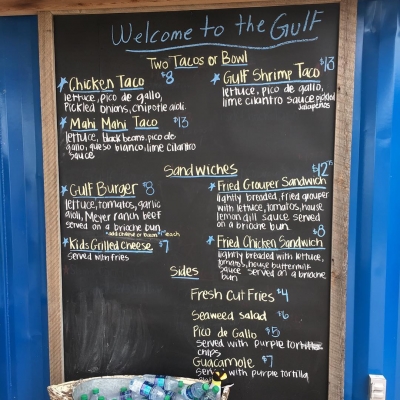 Welcome to the Gulf
Two Tacos or Bowl
Chicken Taco $8
lettuce, pico de gallo,
pickled onions, chipotle aioli.
Mahi Mahi Taco $13
lettuce, black beans, pico de
gallo, queso blanco, lime cilantro
sauce
Gulf Shrimp Taco $13
lettuce, pico de gallo,
lime cilantro sauce pickled
jalapeños
Sandwiches
Gulf Burger $8
lettuce, tomatoes, garlic
aioli, Meyer ranch beef
served on a brioche bun
*add cheese or bacon $1 each
Kids Grilled Cheese $7
served with fries
Fried Grouper Sandwich $12
lightly breaded, fried grouper
with lettuce, tomatoes, house
lemon dill sauce served
on a brioche bun
Fried Chicken Sandwich $8
lightly breaded with lettuce,
tomatoes, house buttermilk
sauce served on a brioche
bun
Sides
Fresh Cut Fries $4
Seaweed Salad $6
Pico de Gallo $5
served with purple tortilla
chips
Guacamole $7
served with purple tortilla